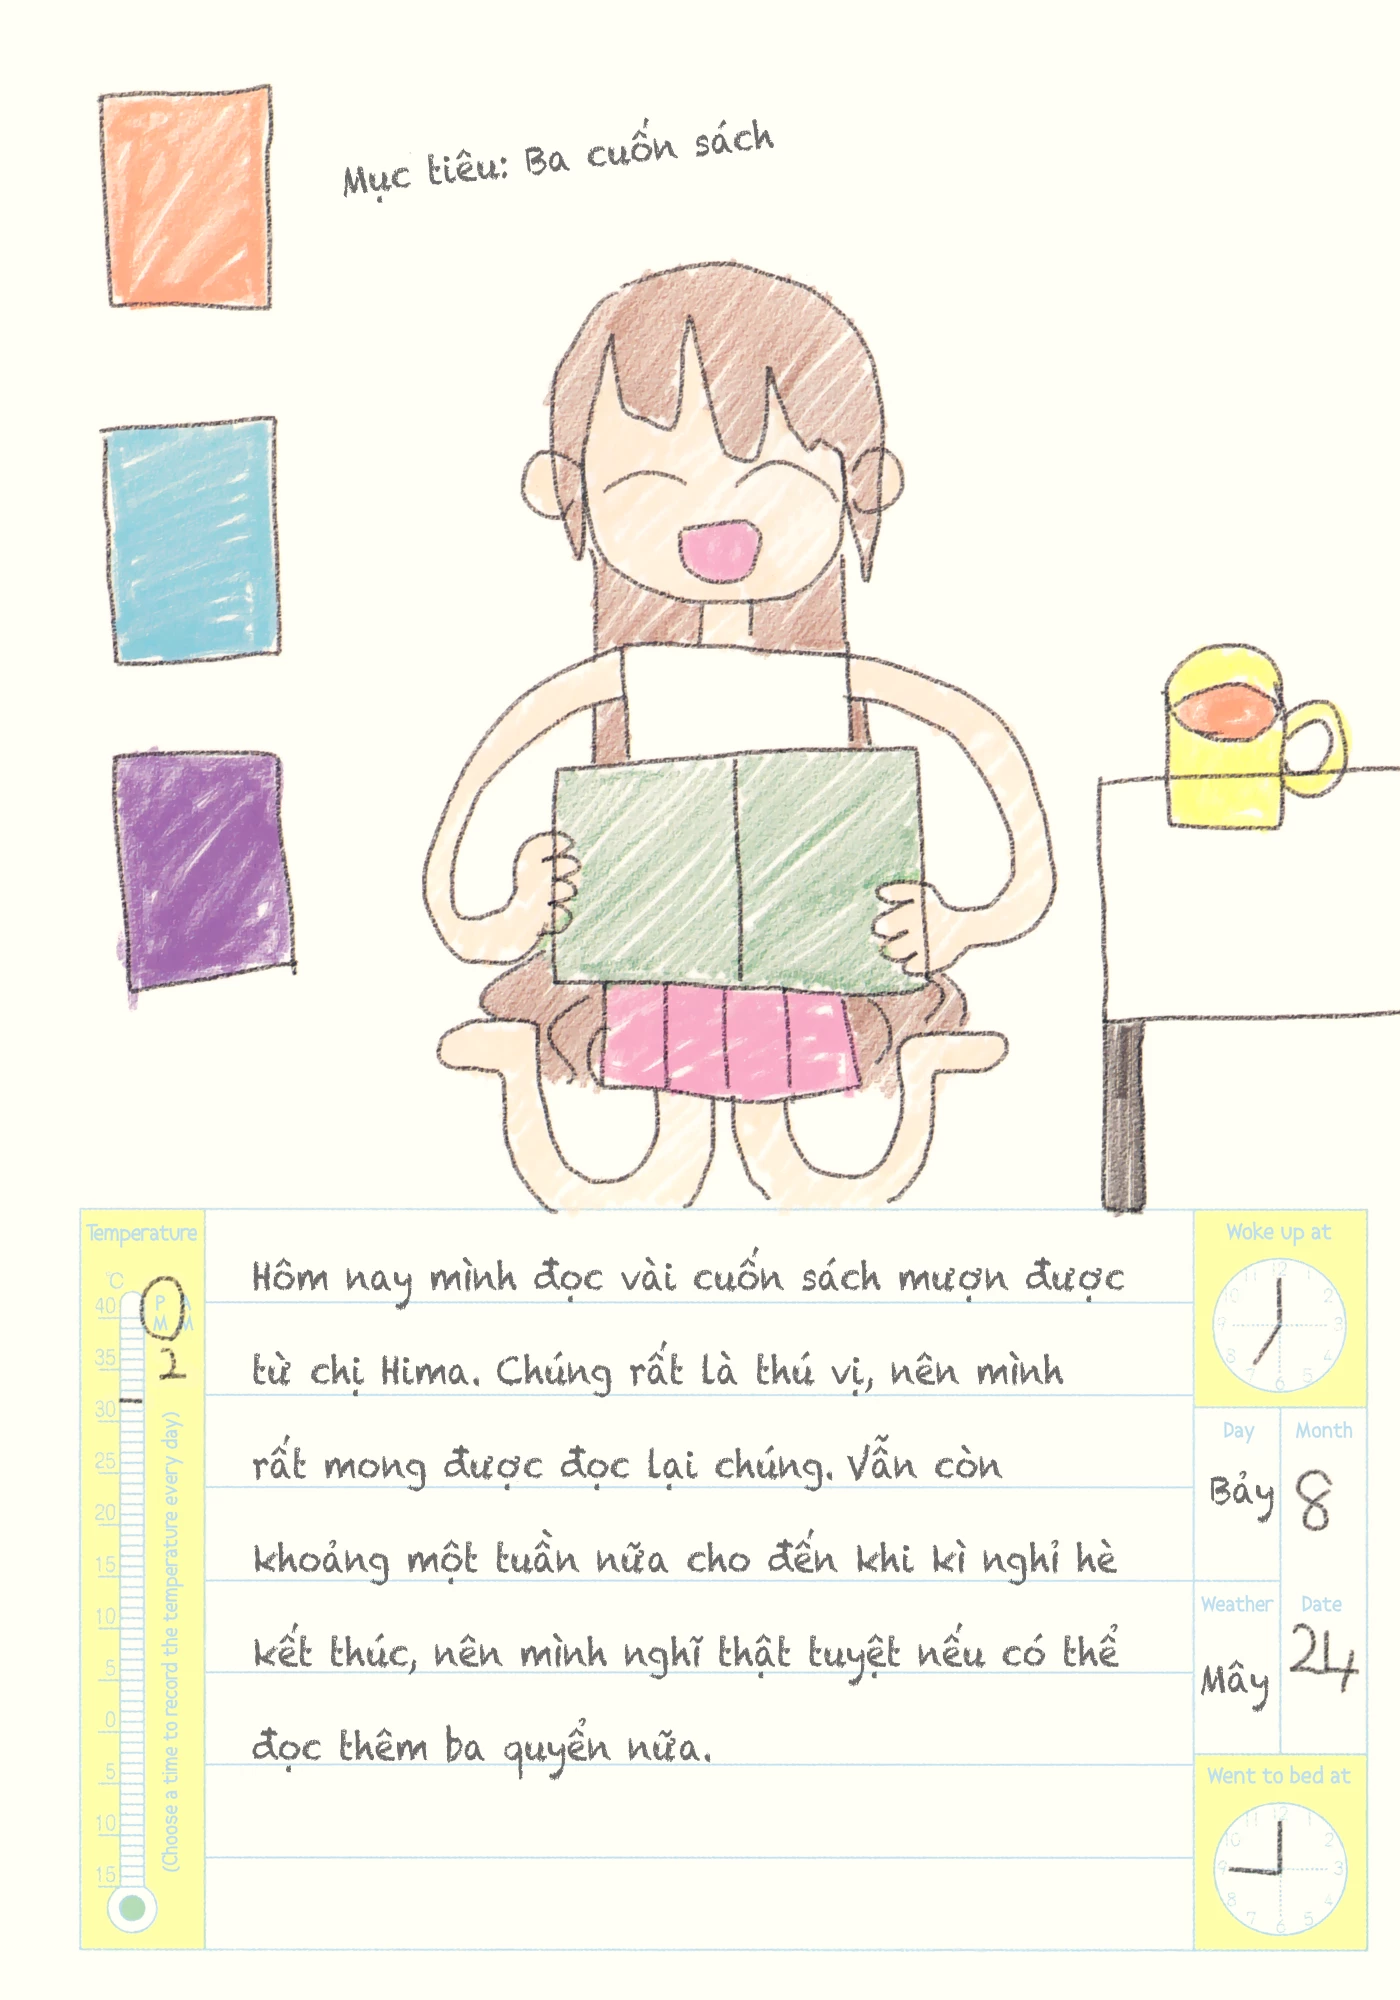 Mục tiêu: Ba cuốn sách
Temperature
°C
40
35
30
25
20
15
10
5
0
5
10
15
P M
A M
2
(Choose a time to record the temperature every day)
Hôm nay mình đọc vài cuốn sách mượn được
từ chị Hima. Chúng rất là thú vị, nên mình
rất mong được đọc lại chúng. Vẫn còn
khoảng một tuần nữa cho đến khi kì nghỉ hè
kết thúc, nên mình nghĩ thật tuyệt nếu có thể
đọc thêm ba quyển nữa.
Woke up at
12
1
2
3
4
5
6
7
8
9
10
11
Day
Bảy
Month
8
Weather
Mây
Date
24
Went to bed at
12
1
2
3
4
5
6
7
8
9
10
11